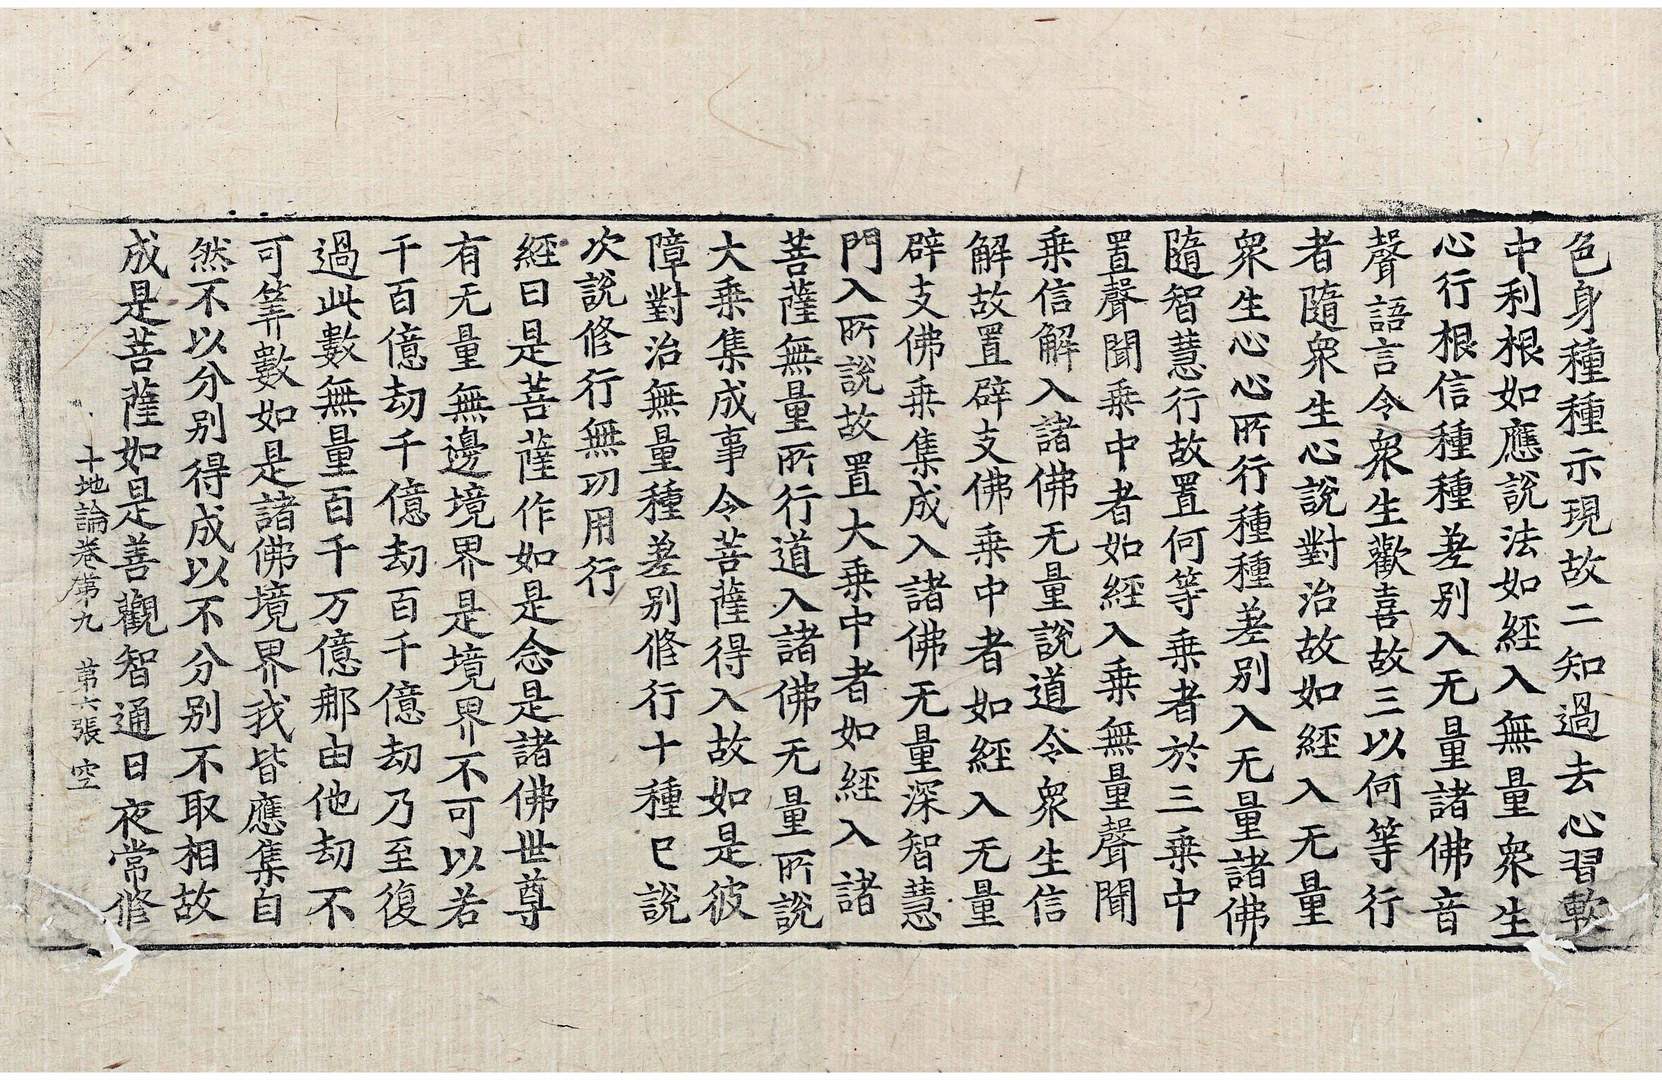 色身種種示現故二知過去心習軟
中利根如應說法如經入無量衆生
心行根信種種差別入无量諸佛音
聲語言令衆生歡喜故三以何等行
者隨衆生心說對治故如經入无量
衆生心心所行種種差別入无量諸佛
隨智慧行故置何等乘者於三乘中
置聲聞乘中者如經入乘無量聲聞
乘信解入諸佛无量說道令衆生信
解故置辟支佛乘中者如經入无量
辟支佛乘集成入諸佛无量深智慧
門入所說故置大乘中者如經入諸
菩薩無量所行道入諸佛无量所說
大乘集成事令菩薩得入故如是彼
障對治無量種差別修行十種已說
次說修行無功用行
經曰是菩薩作如是念是諸佛世尊
有无量無邊境界是境界不可以若
千百億劫千億劫百千億劫乃至復
過此數無量百千万億那由他劫不
可筭數如是諸佛境界我皆應集自
然不以分別得成以不分別不取相故
成是菩薩如是善觀智通日夜常修
十地論卷第九 第六張 空